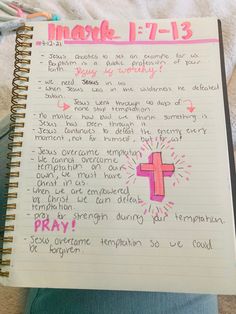 mark 1:7-13
- Jesus baptised to set an example for us.
- Baptism is a public profession of your faith.
Jesus is worthy!
- we need Jesus in us
- When Jesus was in the wilderness he defeated satan.
Jesus went through 40 days of
none stop temptation
- No matter how bad we think something is Jesus has been through it.
- Jesus continues to defeat the enemy every moment, not for himself, but for us!
- Jesus overcame temptation
- We cannot overcome
temptation on our
own, we must have
Christ in us
- when we are empowered
by Christ we can defeat
temptation.
- pray for strength during your temptation.
PRAY!
- Jesus overcame temptation so we could
be forgiven.